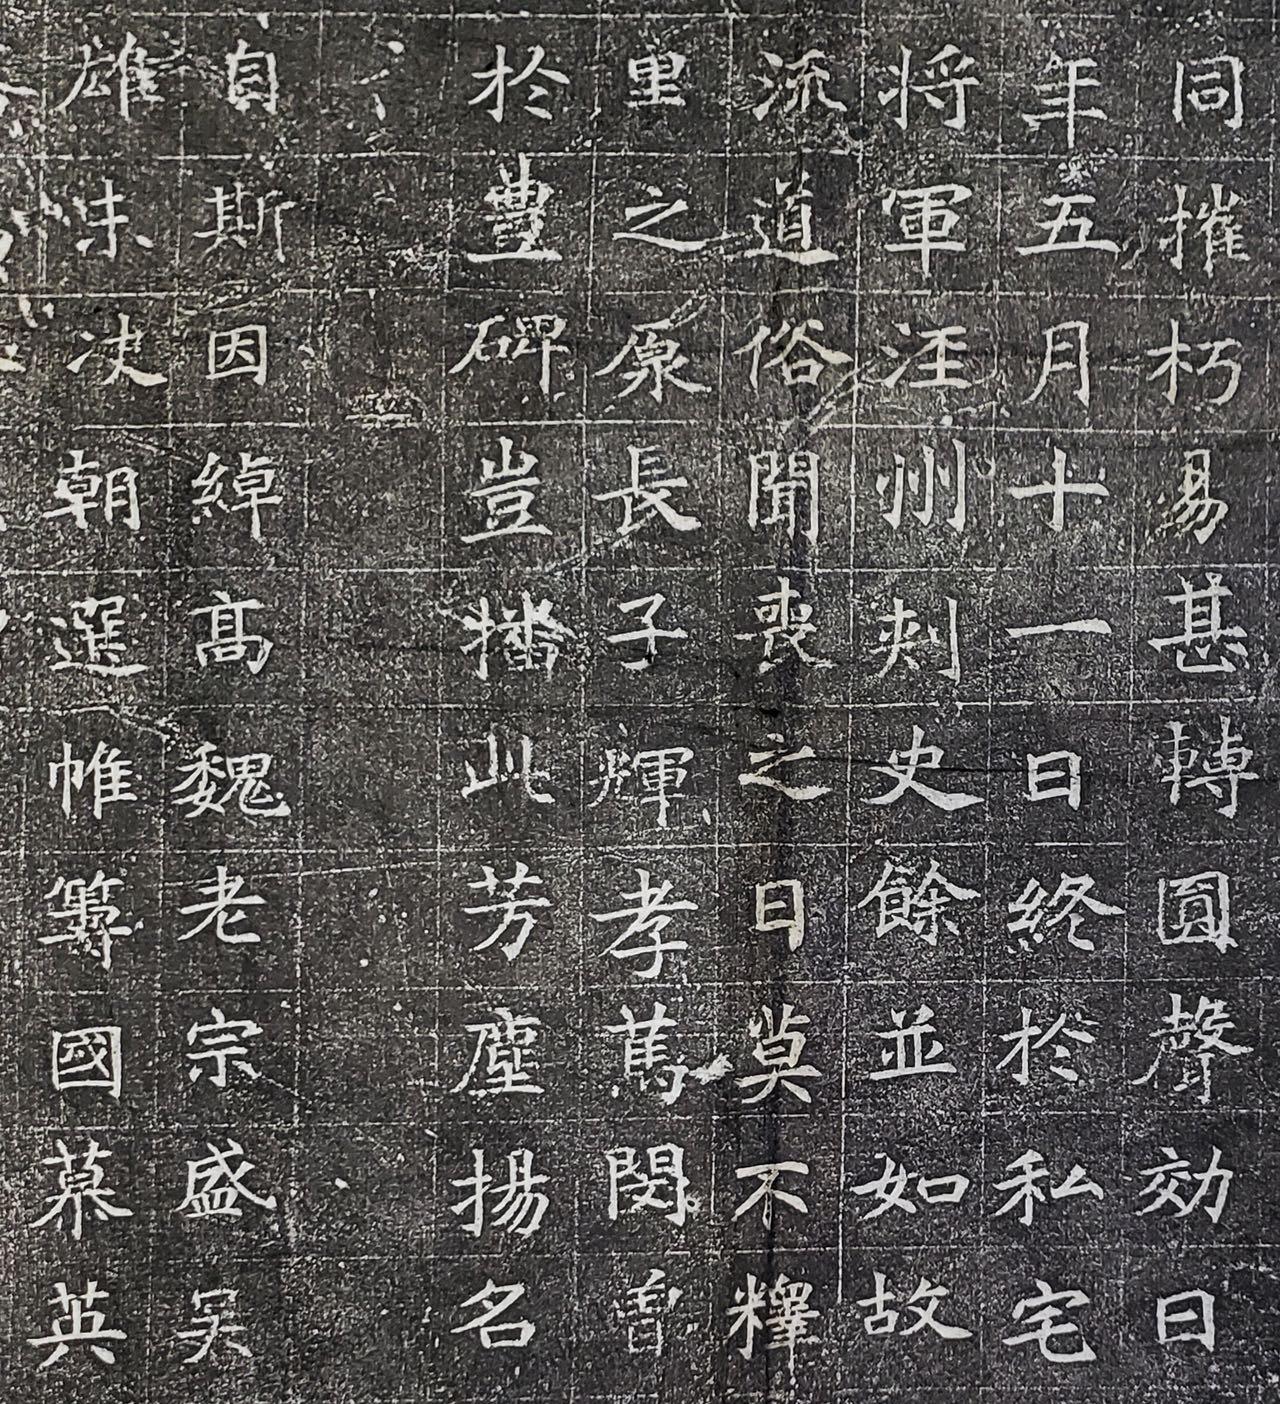 同摧朽易甚轉圓聲効日
年五月十一日終於私宅
将軍汪州刾史餘並如故
流道俗聞喪之日莫不釋
里之原長子輝孝篤閔曽
於豊碑豈播此芳塵揚名
自斯因綽髙魏老宗盛吴
雄未决朝選帷籌國慕英